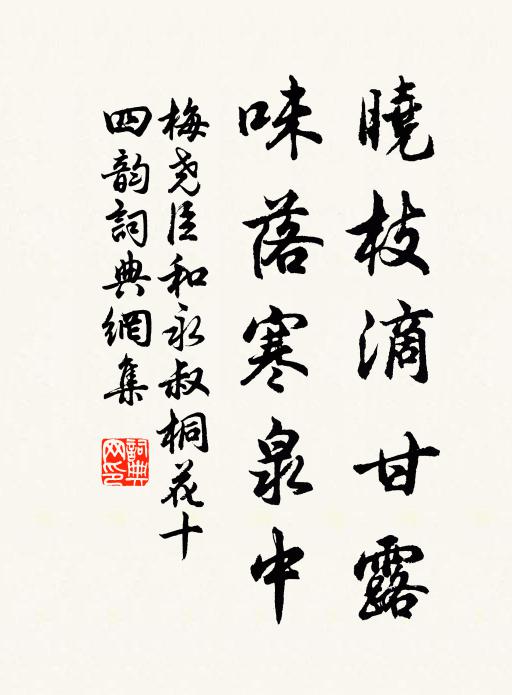 曉枝滴甘露
味落寒泉中
梅堯臣和永叔桐花十
四韵詞典網集
詞典網印